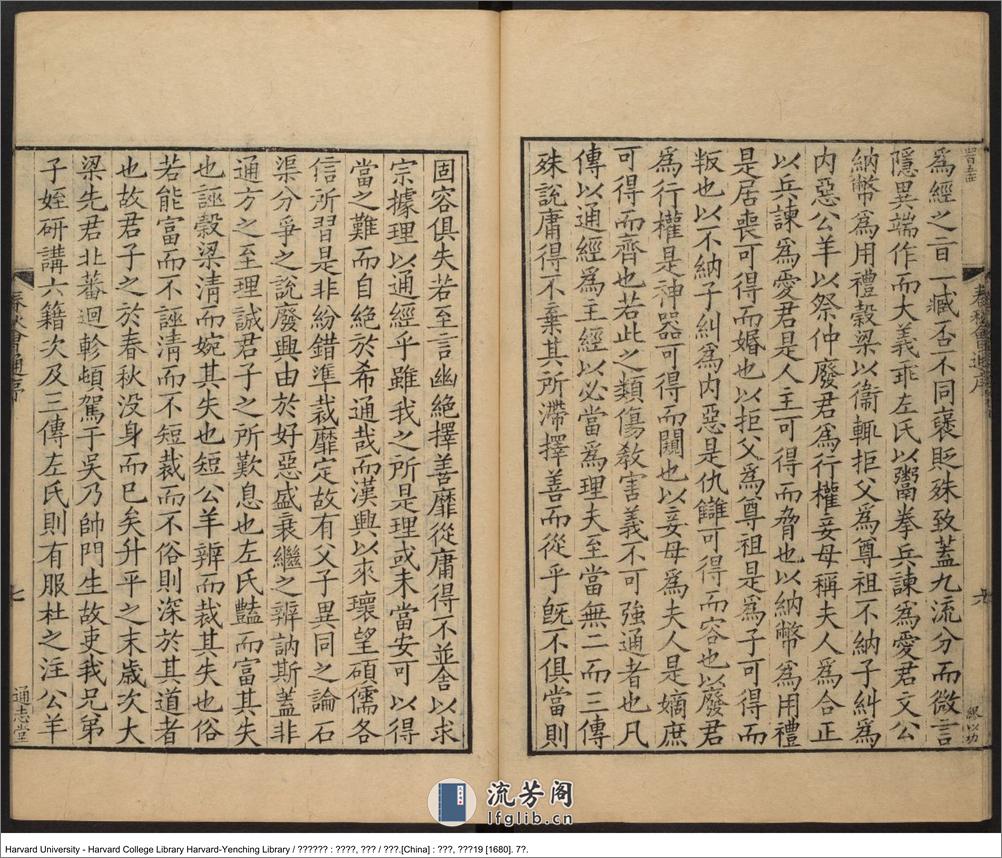 爲經之旨一臧否不同褒貶殊致蓋九流分而微言
隱異端作而大義乖左氏以鬻拳兵諫爲愛君文公
納幣爲用禮穀梁以衞輒拒父爲尊祖不納子糾爲
內惡公羊以祭仲廢君爲行權妾母稱夫人爲合正
以兵諫爲愛君是人主可得而脅也以納幣爲用禮
是居喪可得而婚也以拒父爲尊祖是爲子可得而
叛也以不納子糾爲內惡是仇讎可得而容也以廢君
爲行權是神器可得而闚也以妾母爲夫人是嫡庶
可得而齊也若此之類傷敎害義不可強通者也凡
傳以通經爲主經以必當爲理夫至當無二而三傳
殊說庸得不棄其所滯擇善而從乎旣不俱當則
固容俱失若至言幽絕擇善靡從庸得不並舍以求
宗據理以通經乎雖我之所是理或未當安可以得
當之難而自絕於希通哉而漢興以來瓌望碩儒各
信所習是非紛錯準裁靡定故有父子異同之論石
渠分爭之說廢興由於好惡盛衰繼之辨訥斯蓋非
通方之至理誠君子之所歎息也左氏豔而富其失
也誣穀梁淸而婉其失也短公羊辨而裁其失也俗
若能富而不誣淸而不短裁而不俗則深於其道者
也故君子之於春秋没身而已矣升平之末歲次大
梁先君北蕃迴軫頓駕于吳乃帥門生故吏我兄弟
子姪研講六籍次及三傳左氏則有服杜之注公羊
春秋會通序
七
通志堂
流芳阁
lfglib.cn
Harvard University - Harvard College Library Harvard-Yenching Library / ?????? : ????, ??? / ???.[China] : ???, ???19 [1680]. 7?.